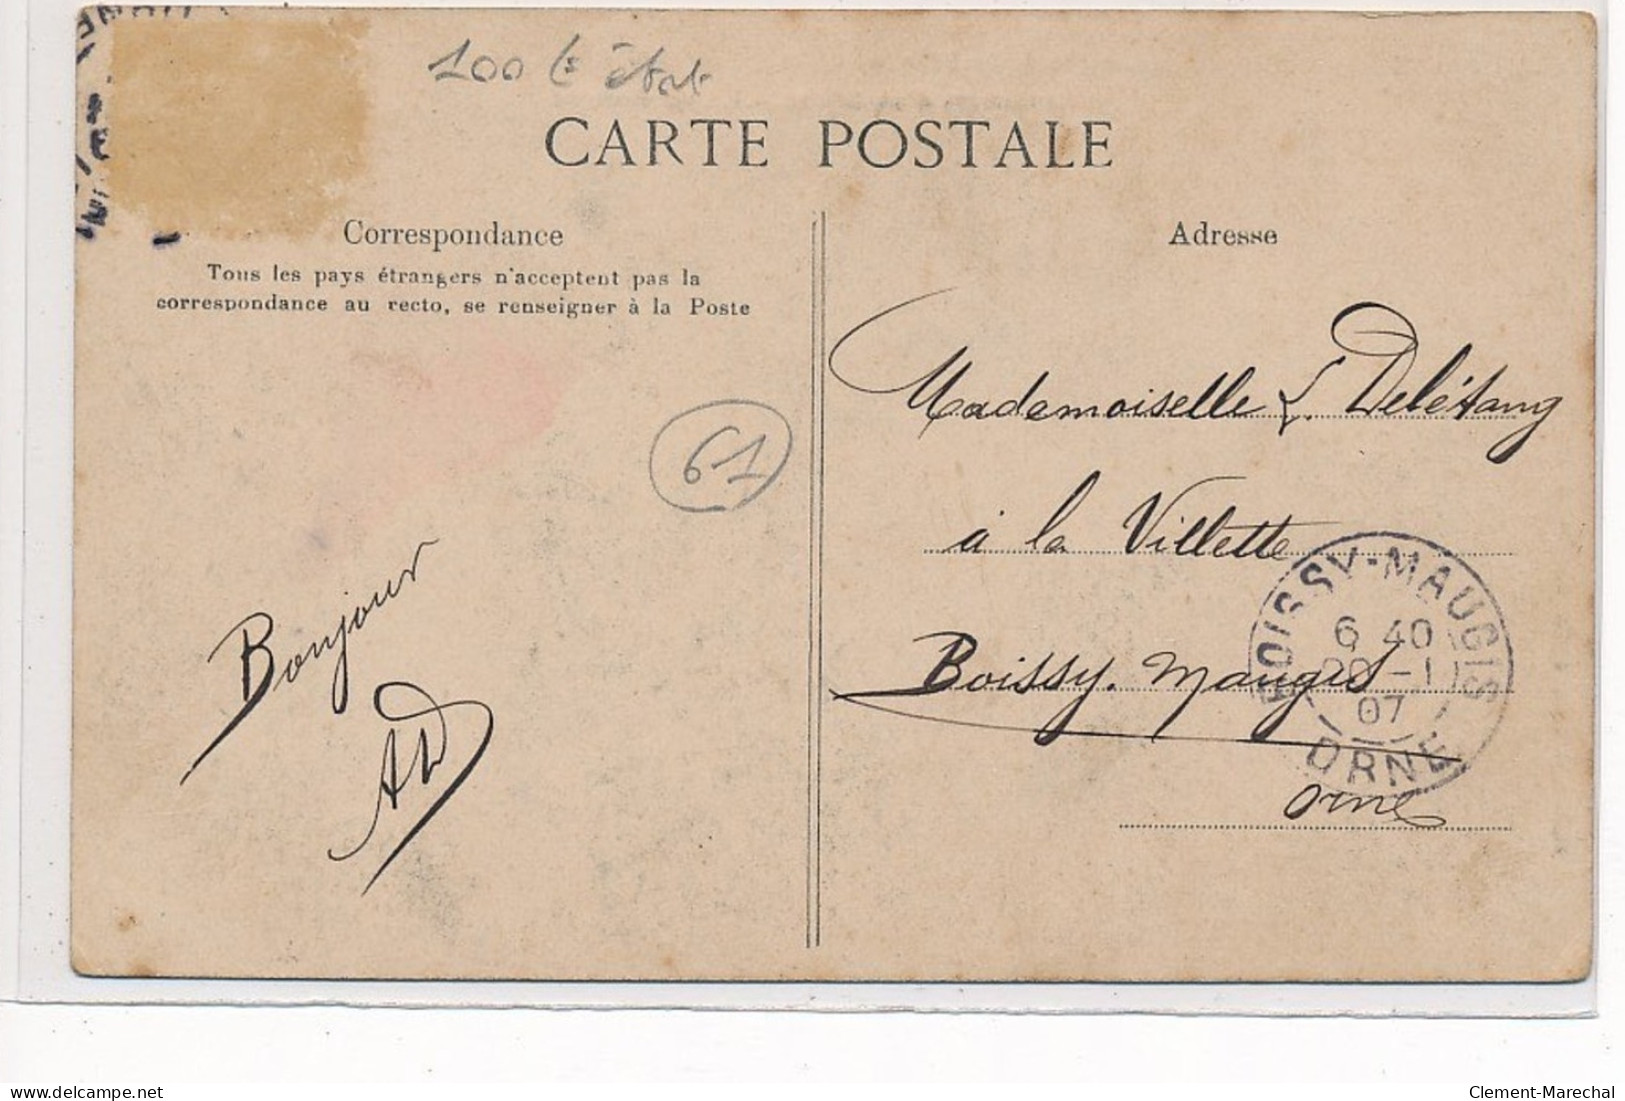 100 Es état
CARTE POSTALE
Correspondance
Tous les pays étrangers n'acceptent pas la
correspondance au recto, se renseigner à la Poste
61
Bonjour
AW
Adresse
Mademoiselle L. Delétang
à la Villette
Boissy. Maugis
Orne
BOISSY-MAUGIS
6 40
20 -1
07
ORNE
delcampe.net
Clement-Marechal